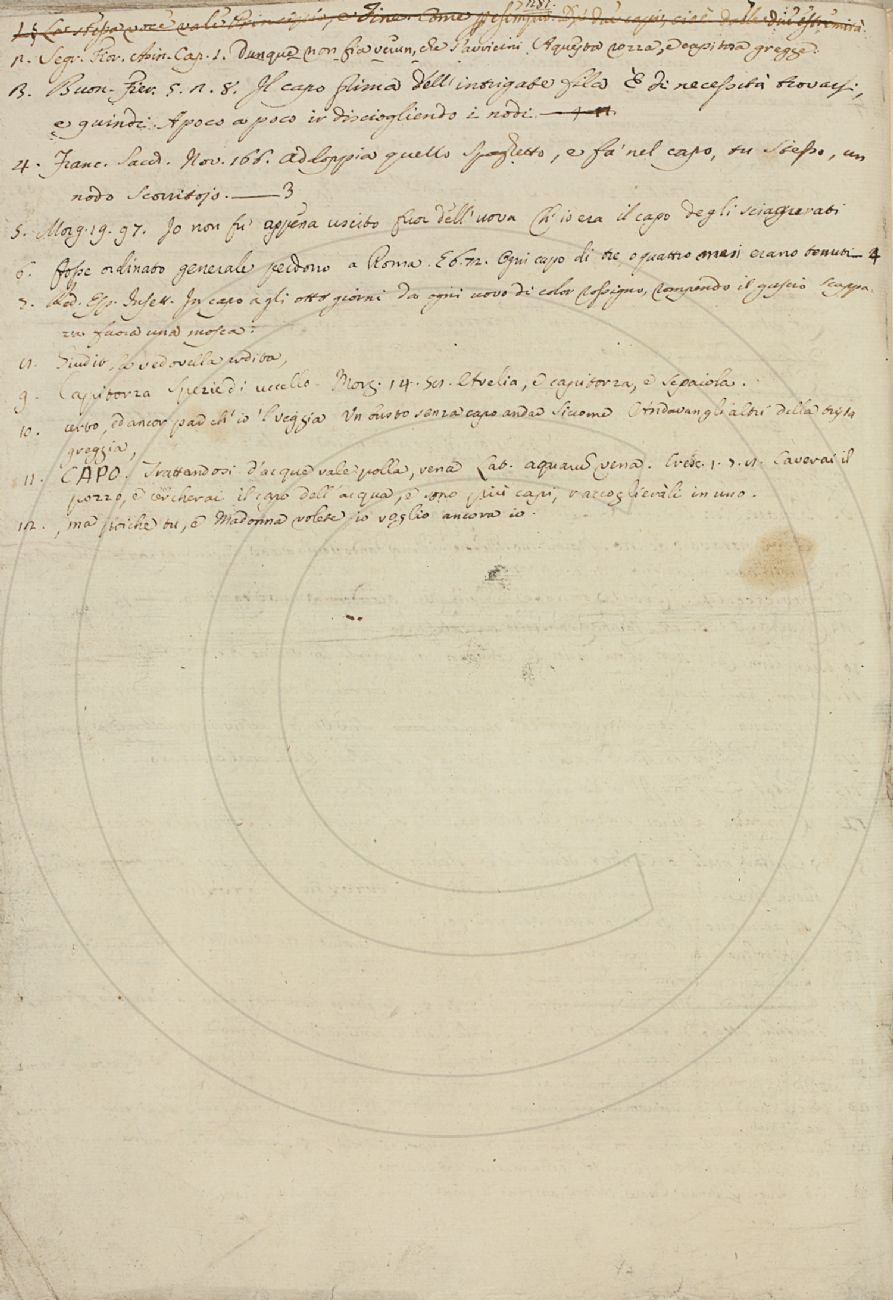 1281.
1. La stessa voce vale Principio, e Fine. Come per esempio. Da due capi, cioè dalle due estremità
2. Segr. Fior. Asin. Cap. 1. Dunque non fia verun, che s'avvicini A questa rozza, e capitosa gregge.
3. Buon. Fier. 5. 2. 8. Il capo stima dell'intrigate fila È di necessità trovarsi,
e quindi A poco a poco ir disciogliendo i nodi.
4. Franc. Sacch. Nov. 166. addoppia quello spaghetto, e fa' nel capo, tu stesso, un
nodo scorritojo. 3
5. Morg. 19. 97. Io non fu' appena uscito fuor dell'uova Ch'io era il capo degli sciagurati
6. fosse ordinato generale perdono a Roma. E 6. 72. Ogni capo di tre, o quattro mesi erano tenuti 4
7. Red. Esp. Inset. In capo agli otto giorni da ogni uovo di color rossigno, rompendo il guscio scappa-
va fuora una mosca:
8. Giudit, la vedovella ardita,
9. Capitorza Spezie di uccello. Morg. 14. 58. Avelia, e capitorza, e sepaiola.
10. certo, ed ancor par ch'io 'l veggia Un busto senza capo andar siccome Andavan gli altri della trista
greggia,
11. CAPO. Trattandosi d'acque vale polla, vena Lat. aquarum vena. Cresc. 1. 7. 8. Caverai il
pozzo, e cercherai il capo dell'acqua, e sono più capi, raccoglierali in uno.
12. , ma poiche tu, e Madonna volete io voglio ancora io.